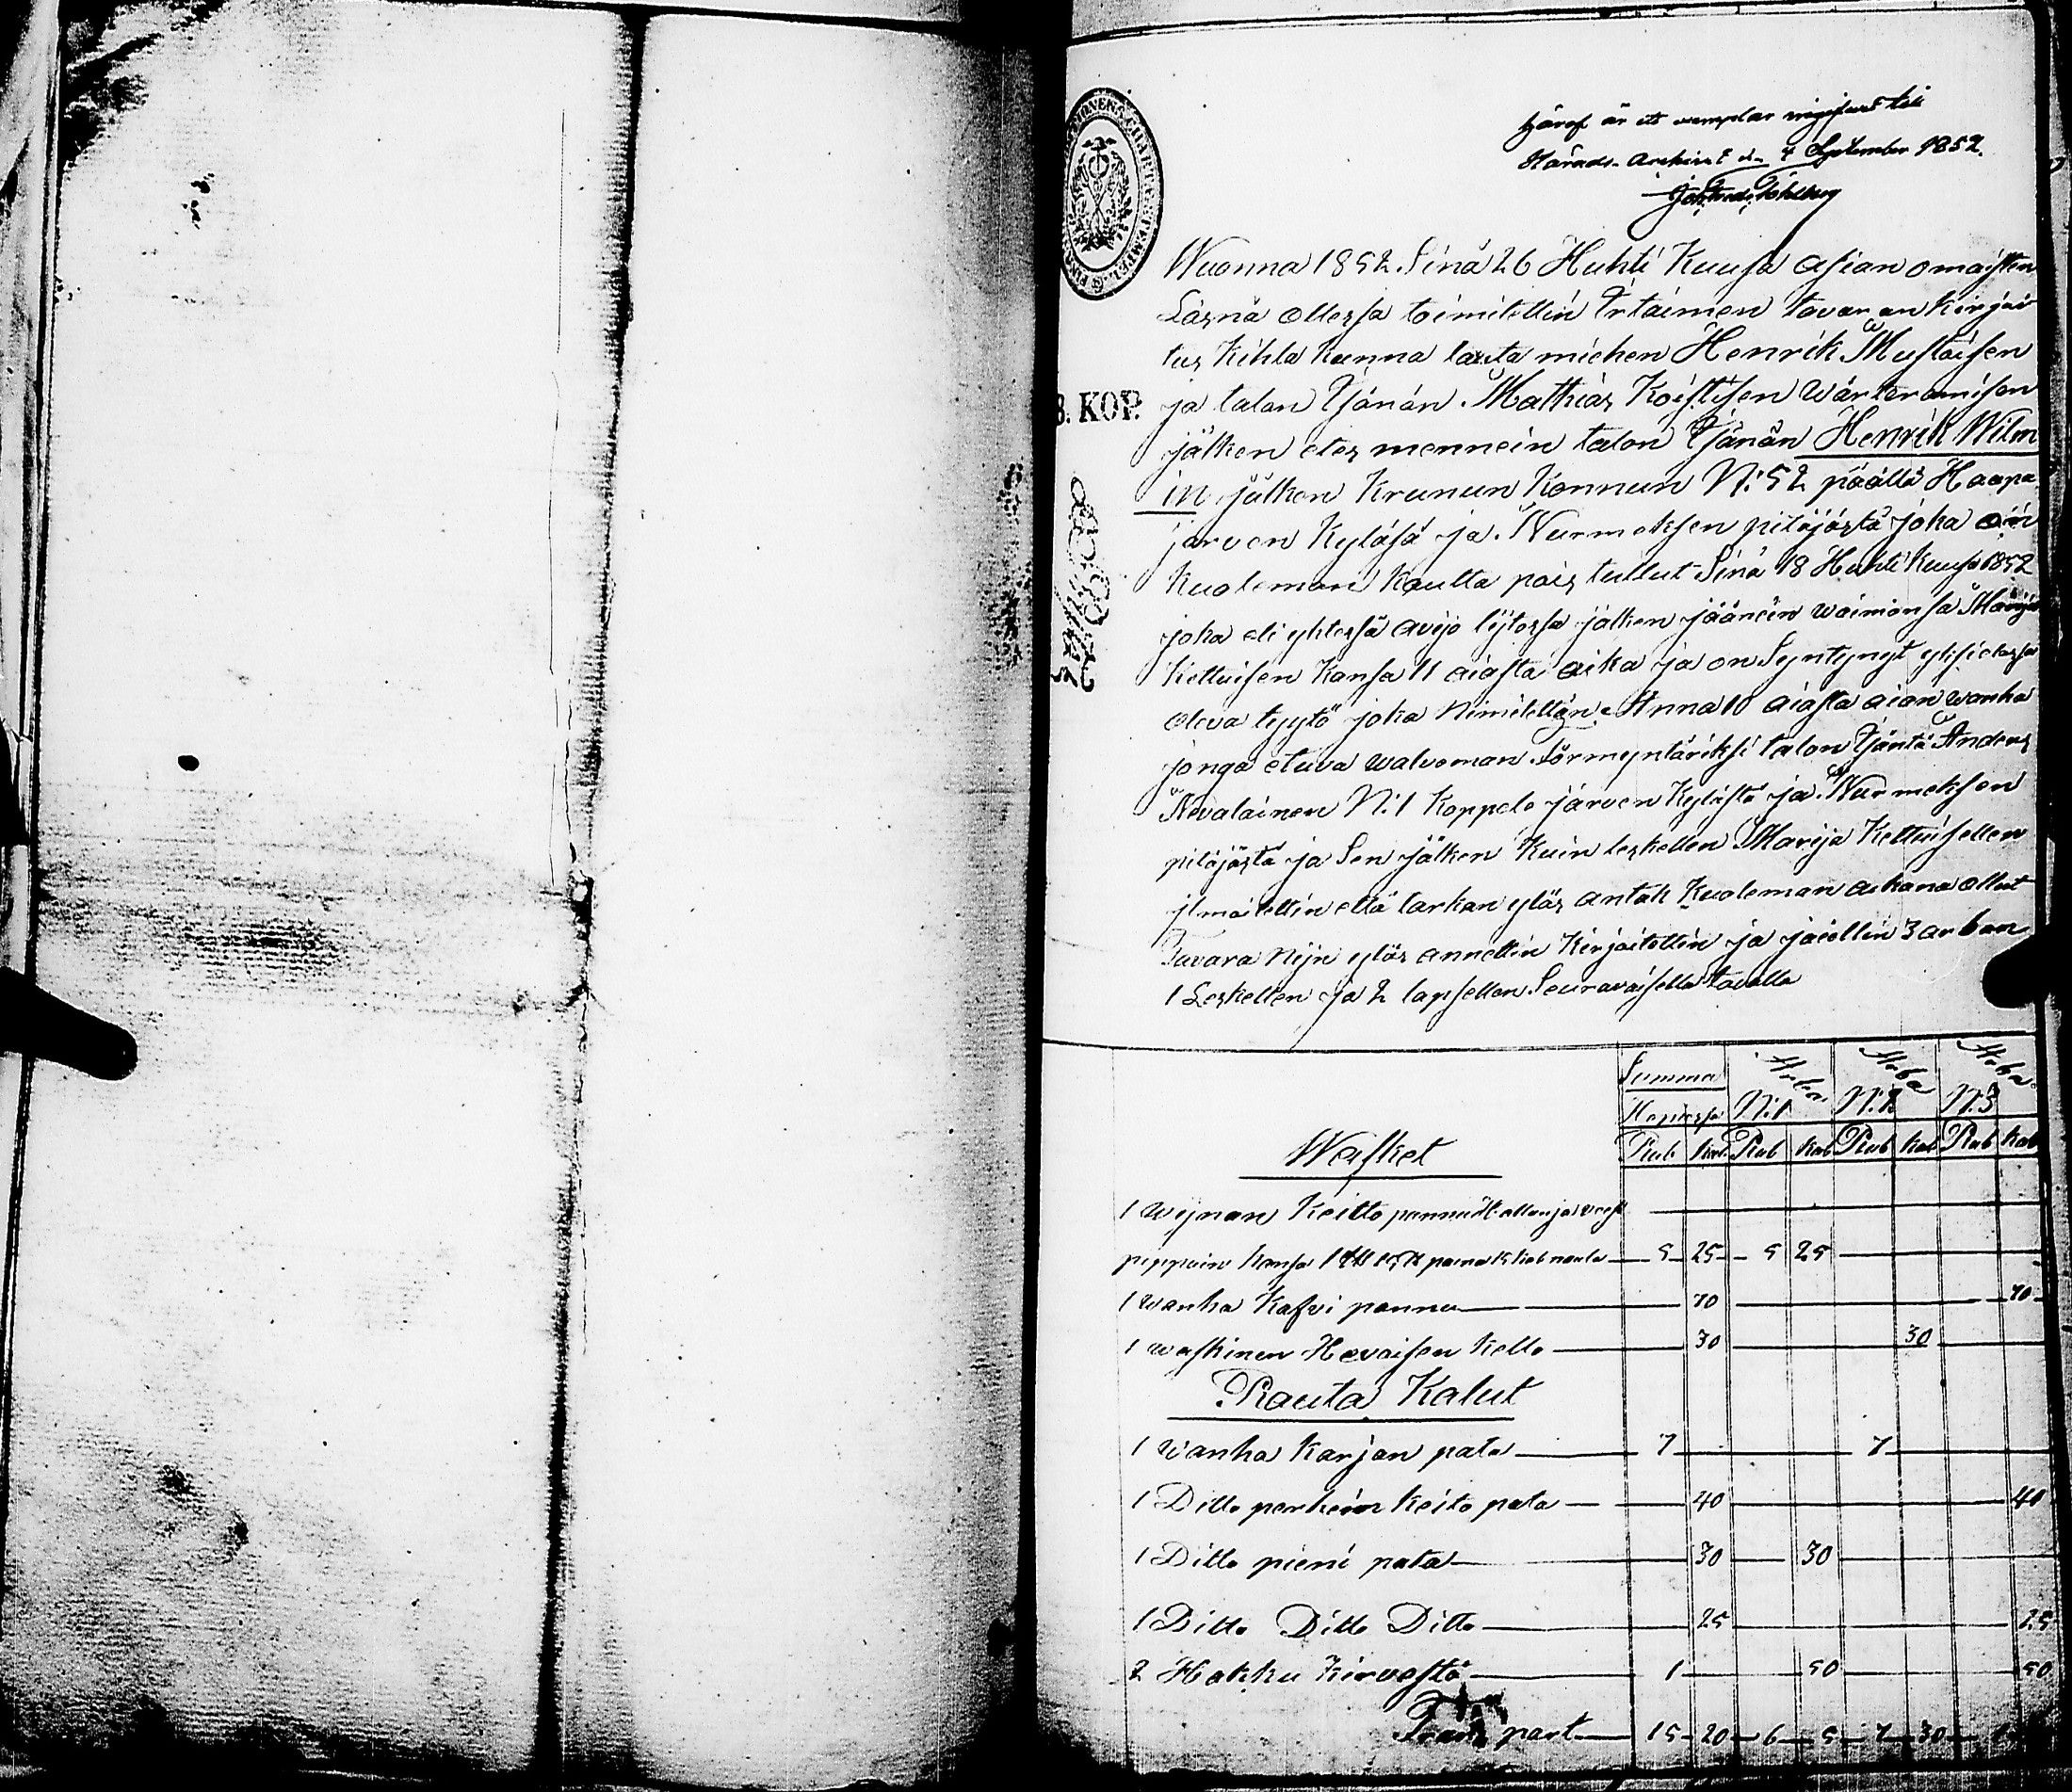 Häraf är ett exemplar ingifvet till
Härads-Archivet d. 4 September 1852.
Wuonna 1852. Sinä 26 Huhti Kuusa asian omaisten
Läsnä ollessa toimitettin Irtaimen tavaran kirjai
tus Kihla kunna lauta miehen Henrik Mustoisen
ja talon Isänän Mathias Koistisen wärteramisen
jälken eles mennein talon Isänän Henrik Wilm
in jälken Krunun Konnun N:52 päällä Haapa
jarven Kyläsä ja Nurmeksen pitäjästä joka on
Kuoleman Kautta pois tullut Sinä 18 Huhti Kuusa 1852
joka eli yhtessä avijo lijtossa jälken jäänein waimonsa Marija
Kettuisen Kansa 11 aiasta aika ja on Syntynyt yksi elossa
oleva tyytö joka Nimitettän Anna 10 aiasta aian wanha
jonga etuva walvoman Förmyntäriksi talon Isäntä Anders
Nevalainen N:1 Koppelo järven Kylästä ja Nurmeksen
pitäjästä ja Sen jälken Kuin leskellen Marija Kettuisellen
jlmoitettin että tarkan ylös antak Kuoleman aikana ollut
Tavara Nijn ylös annettin Kirjoitettin ja jaiettin 3 arban
1 Leskellen ja 2 lapsellen Seuravaisella tavalla
8. KOP.
Summa Arba Arba Arba
Hopiassa N:1 N:2 N:3
Rub kop Rub kop Rub kop Rub kop
Wasket
1 wijnan Keitto pannu
5 25 5 25
1 wanha Kafvi pannu 70 70
1 waskinen Hevoisen Kello 30 30
Rauta Kalut
1 Wanha Karjan pata 7 7
1 Ditto perheen Keito pata 40 40
1 Ditto pieni pata 30 30
1 Ditto Ditto Ditto 25 25
2 Hakku Kirvestä 1 50 50
Transport 15 20 6 5 7 30